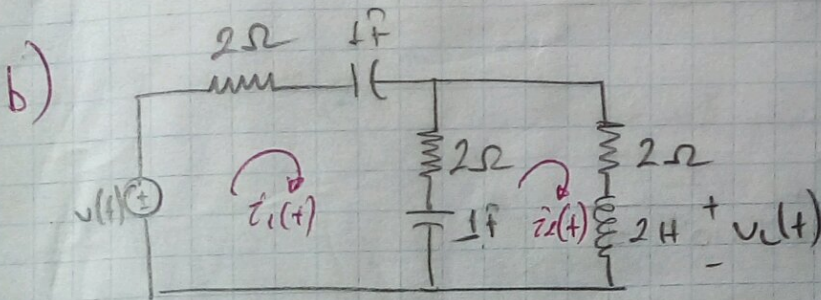 b)
2Ω 1F
2Ω 2Ω
v(t) + i₁(t) 1F i₂(t) 2H + vL(t) -